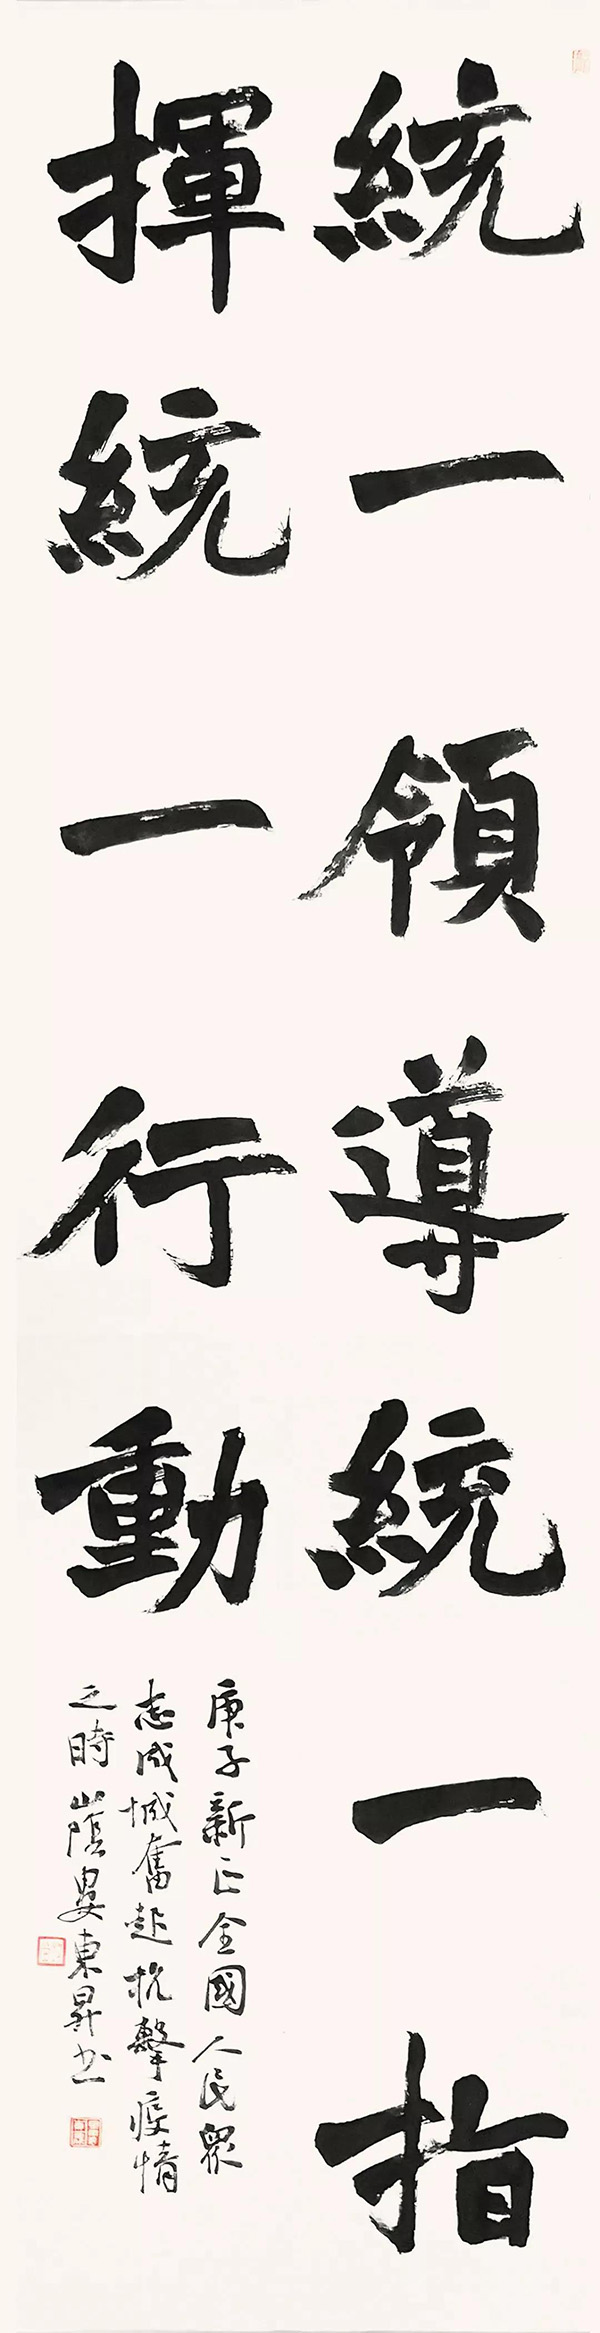 統一領導統一指
揮統一行動
庚子新正全國人民眾
志成城奮起抗擊疫情
之時山陰晏東昇书